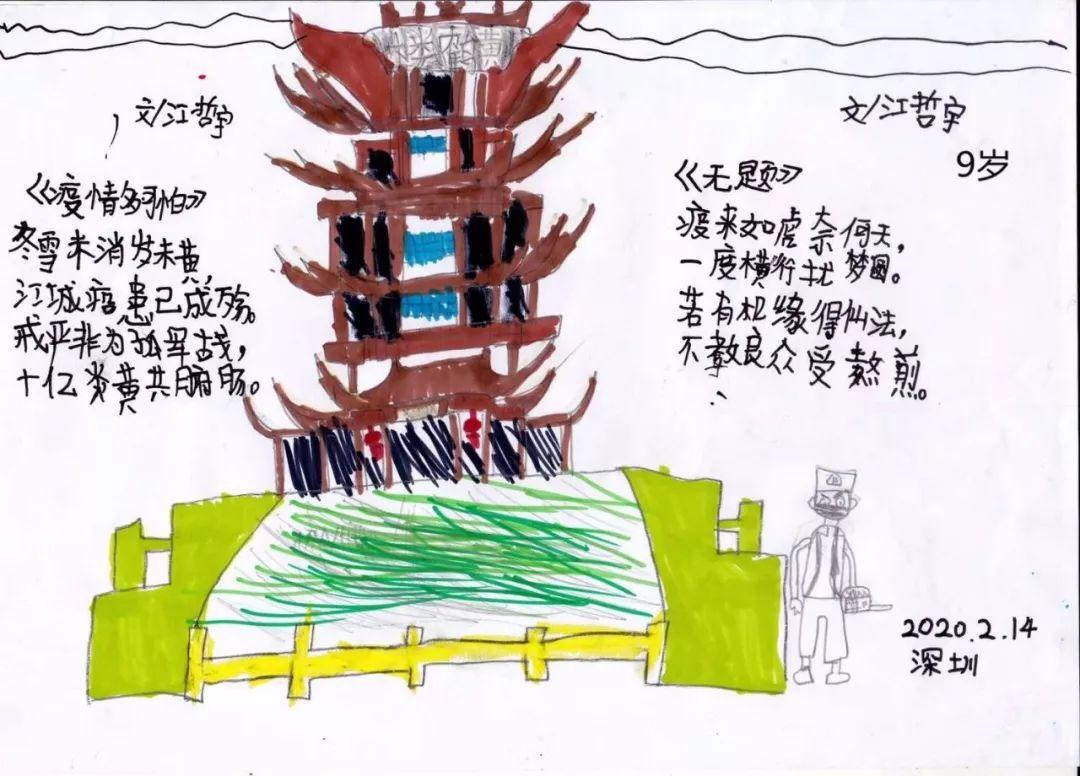 黄鹤楼
文/江哲宇
《疫情多可怕》
冬雪未消发未黄，
江城患已成殇。
戒严非为孤军战，
十亿炎黄共腑肠。
文/江哲宇
9岁
《无题》
疫来如虎奈何天，
一度横行扰梦圆。
若有机缘得仙法，
不教良众受熬煎。
2020.2.14
深圳